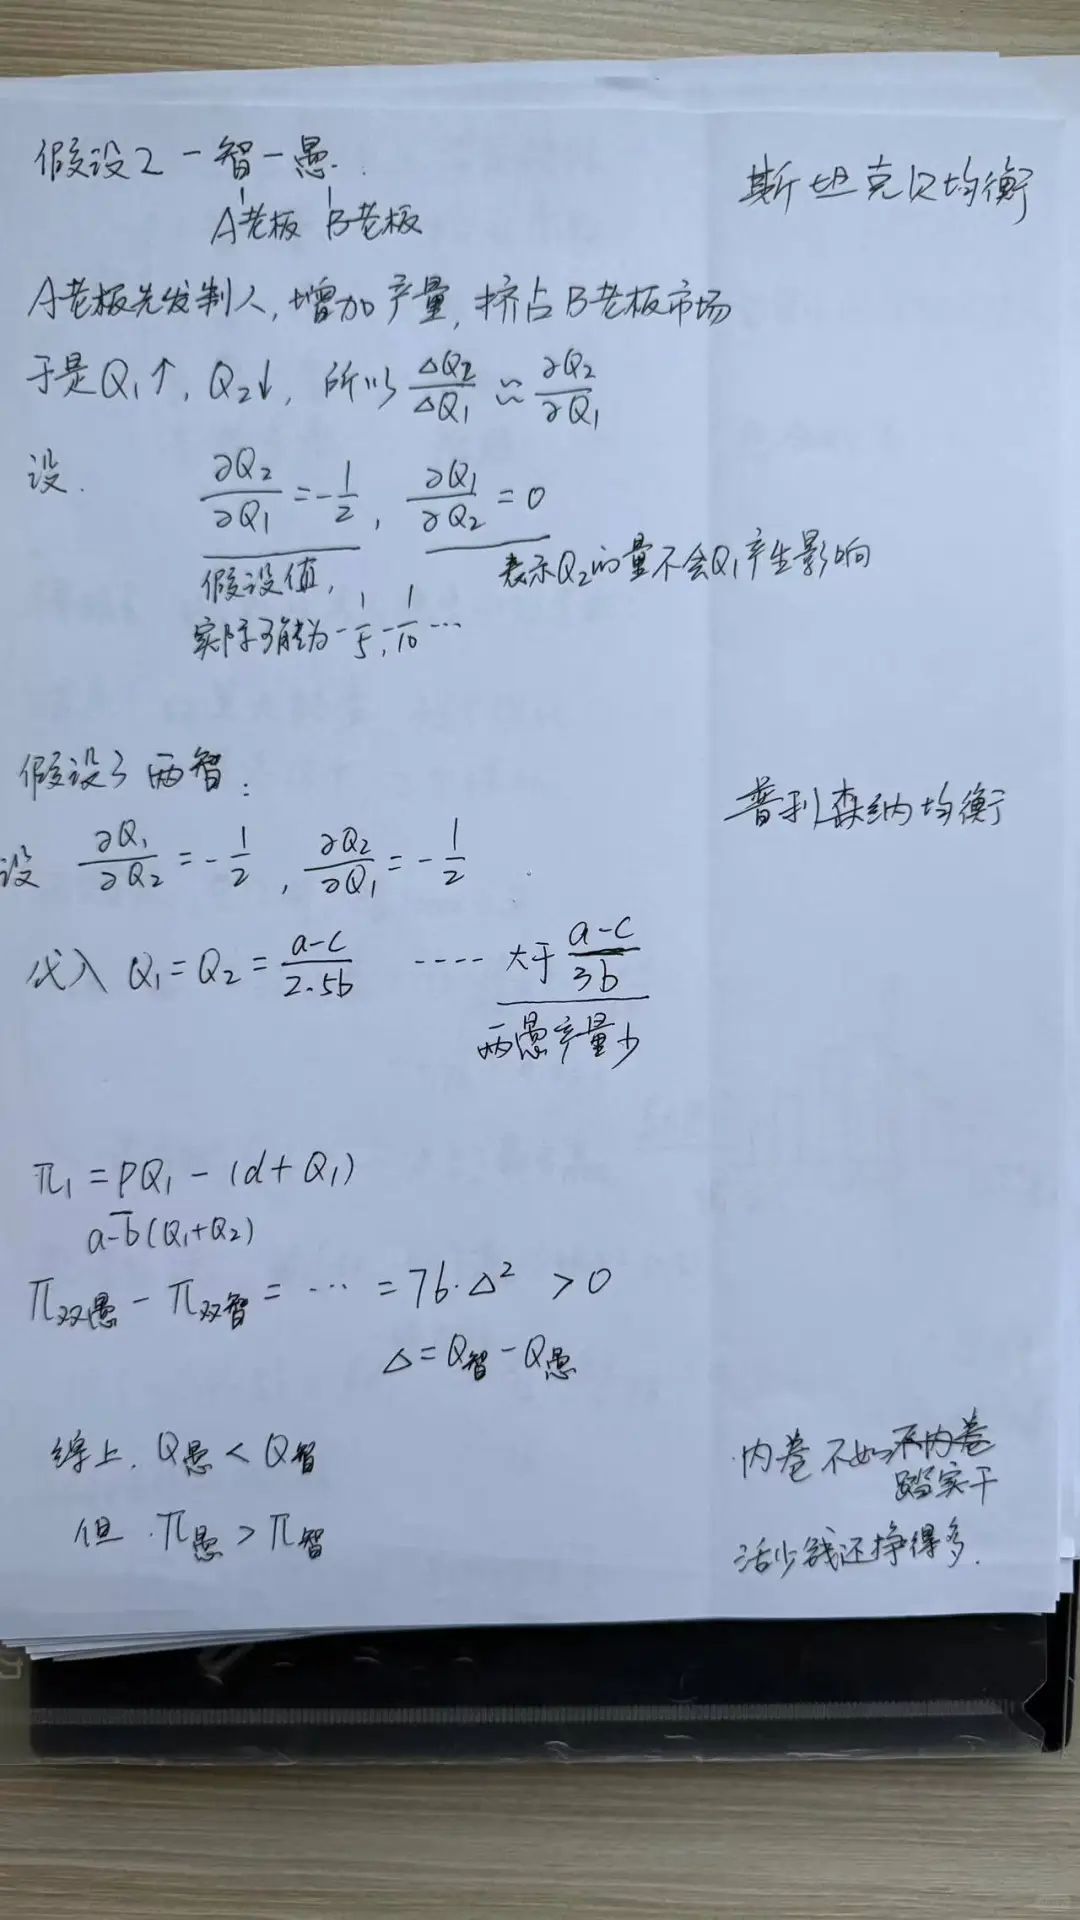 假设2 一智一愚.
斯坦克贝均衡
A老板 B老板
A老板先发制人,增加产量,挤占B老板市场
于是Q₁↑, Q₂↓, 所以 ΔQ₂/ΔQ₁ ≈ ∂Q₂/∂Q₁
设. ∂Q₂/∂Q₁ = -1/2, ∂Q₁/∂Q₂ = 0
假设值,
表示Q₂的量不会Q₁产生影响
实际可能为 -1/5, -1/10 …
假设3 两智:
普利森纳均衡
设 ∂Q₁/∂Q₂ = -1/2, ∂Q₂/∂Q₁ = -1/2.
代入 Q₁ = Q₂ = a-c/2.5b ---- 大于 a-c/3b
两愚产量少
π₁ = PQ₁ - (d+Q₁)
a-b(Q₁+Q₂)
π双愚 - π双智 = … = 7b·Δ² > 0
Δ = Q智 - Q愚
综上. Q愚 < Q智
但. π愚 > π智
内卷不如不内卷
踏实干
活少钱还挣得多.